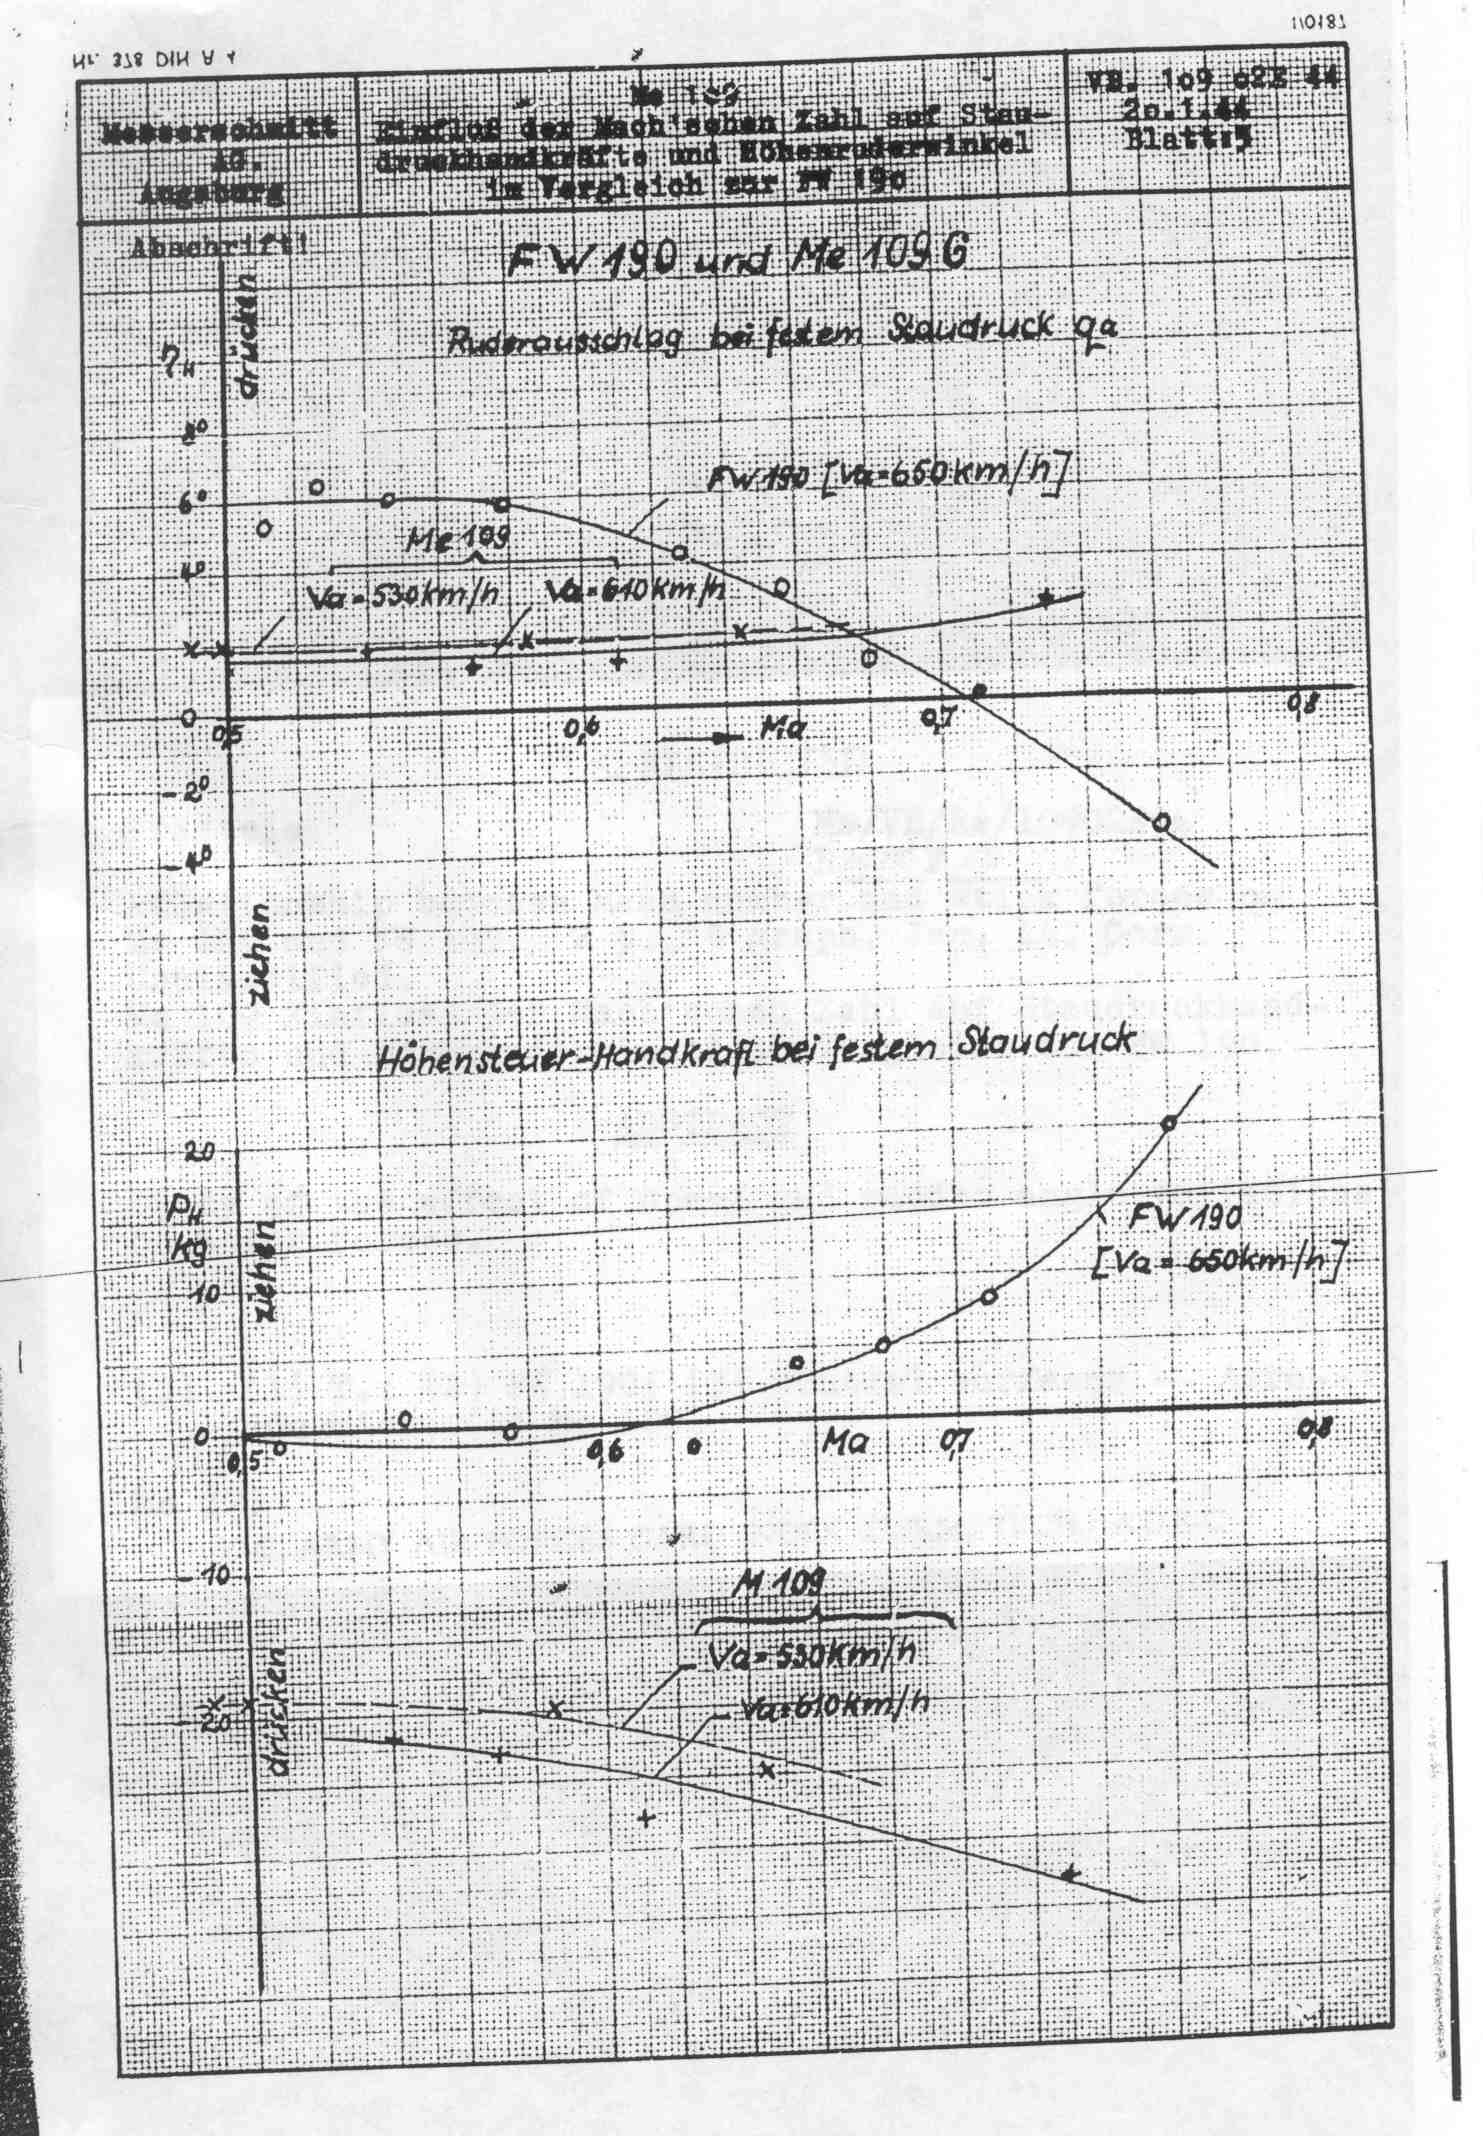 Nr. 378 DIN A 4
110187
Messerschmitt
AG.
Augsburg
Me 109
Einfloß der Mach'schen Zahl auf Stau-
druckhandkräfte und Höhenruderwinkel
im Vergleich zur FW 190
VB. 109 02E 44
20.1.44
Blatt:5
Abschrift!
FW 190 und Me 109 G
drücken
Ruderausschlag bei festem Staudruck qa
ηH
8°
FW 190 [Va=650km/h]
6°
Me 109
4°
Va=530km/h Va=610km/h
0
0,5 0,6 Ma 0,7 0,8
-2°
-4°
ziehen
Höhensteuer-Handkraft bei festem Staudruck
20
PH
kg
ziehen
FW 190
[Va = 650km/h]
10
0
0,5 0,6 Ma 0,7 0,8
-10
M 109
Va=530km/h
Va=610km/h
-20
drücken